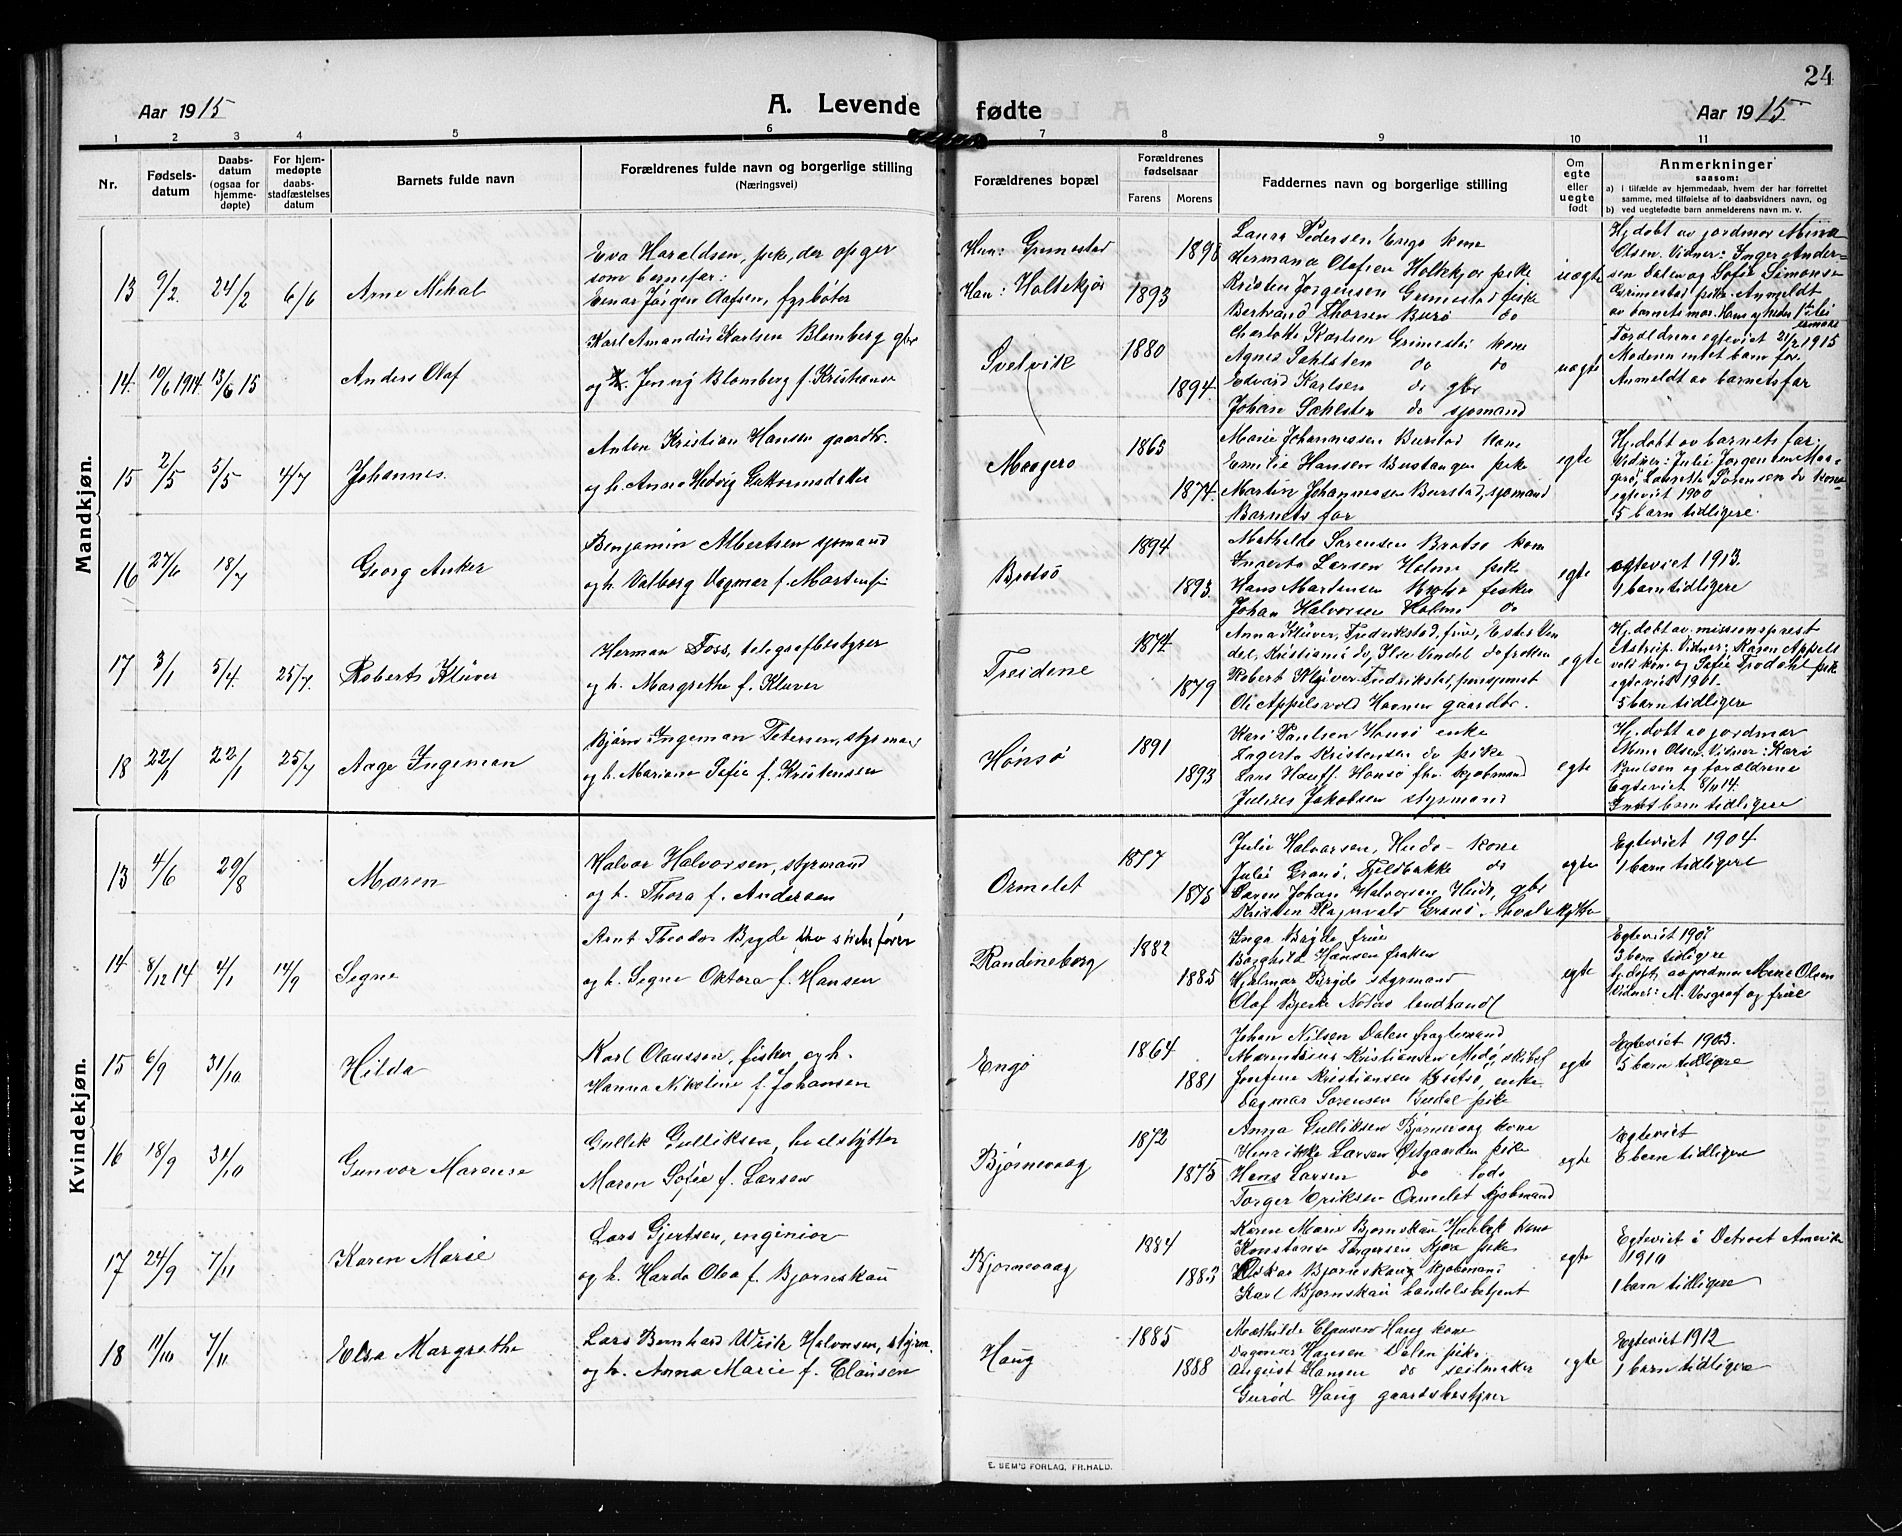 24
Aar 1915
A. Levende fødte
Aar 1915
1 2 3 4 5 6 7 8 9 10 11
Nr.
Fødsels-
datum
Daabs-
datum
(ogsaa for
hjemme-
døpte)
For hjem-
medøpte
daabs-
stadfæstelses
datum
Barnets fulde navn
Forældrenes fulde navn og borgerlige stilling
(Næringsvei)
Forældrenes bopæl
Forældrenes
fødselsaar
Farens Morens
Faddernes navn og borgerlige stilling
Om
egte
eller
uegte
født
Anmerkninger
saasom:
a) i tilfælde av hjemmedaab, hvem der har forrettet
samme, med tilføielse af to daabsvidners navn, og
b) ved uegtefødte barn anmelderens navn m. v.
Mandkjøn.
13 9/2. 24/2 6/6 Arne Mikal
Eva Haraldsen, pike, der opger
som barnefar:
Einar Jørgen Olafsen, fyrbøter
Hun: Grimestad
Han: Holtekjær
1893 1898
Laura Pedersen Engø kone
Hermana Olafsen Holtekjær pike
Kristen Jørgensen Grimestad fiske
Bertrand Thorsen Burø do
uegte
Hj. døbt av jordmor Mina
Olsen. Vidner: Inger Ander-
sen Dalen og Sofie Simonse
Grimestad pike. Anmeldt
av barnets mor.
14 10/6 1914 13/6 15 Anders Olaf
Karl Amandus Karlsen Blomberg gbr
og h. Jenny Blomberg f. Kristianse
Svelvik
1880 1894
Charlotte Karlsen Grimestad kone
Agnes Sahlsten do do
Edvard Karlsen do gbr
Johan Sahlsten do sjømand
uegte
Forældrene egteviet 21/2 1915
Moderen intet barn før.
Anmeldt av barnets far
15 2/5 5/5 4/7 Johannes.
Anton Kristian Hansen gaardbr.
og h. Anna Hedvig
Maagerø
1865 1874
Marie Johannesen Burstad kone
Emilie Hansen Bustangen pike
Martin Johannesen Burstad, sjømand
Barnets far
egte
Hj. døbt av barnets far.
Vidner: Julie Jørgensen Maa-
gerø, do kone
egteviet 1900
5 barn tidligere.
16 27/6 18/7 Georg Anker
Benjamin Albertsen sjømand
og h. Valborg Dagmar f. Martinsen
Brøtsø
1894 1893
Mathilde Sørensen Brøtsø kone
Larsen Holme pike
Hans Martinsen Brøtsø fisker
Johan Halvorsen Holme do
egte
egteviet 1913.
1 barn tidligere
17 3/1 5/4. 25/7. Roberts Klüver
Herman Foss, telegrafbestyrer
og h. Margrethe f. Klüver
Treidene
1874 1879
Anna Klüver, Fredrikstad, frue, Ester Vin
del, Kristiania do, Else Vindel do frøken
Robert Klüver Fredrikstad, pensjonist
Ole Appelsvold Havnen gaardbr.
egte
Hj. døbt av missionsprest
Astrup. Vidner: Karen Appels
vold kone og Sofie pike
egteviet 1901.
5 barn tidligere
18 22/1 22/1 25/7 Aage Ingeman
Bjarne Ingeman Petersen, styrman
og h. Mariane Sofie f. Kristensen
Hønsø
1891 1893
Kari Paulsen Hønsø enke
Lagerta Kristensen do pike
Lars Hauff. Hønsø fhv. kjøbmand
Julius Jakobsen styrmand
egte
Hj. døbt av jordmor
Mina Olsen. Vidner: Kari
Paulsen og forældrene
Egteviet 8/11 14.
Intet barn tidligere
Kvindekjøn.
13 4/6 29/8 Maren
Halvor Halvorsen, styrmand
og h. Thora f. Andersen
Ormelet
1877 1875
Julie Halvorsen, Hudø kone
Julie Granø, Fjeldbakke do
Søren Johan Halvorsen, Hudø, gbr
Kristen Ragnvald Granø, hvalskytter
egte
Egteviet 1904
1 barn tidligere
14 8/12 14 4/1 14/9 Segne
Arnt Theodor Bryde skibsfører
og h. Segne Oktora f. Hansen
Randineborg
1882 1885
Inga Bryde frue
Borghild Hansen frøken
Hjalmar Bryde styrmand
Olaf Bjerke Nøtterø landhandl
egte
Egteviet 1907
3 barn tidligere
hj. døpt av jordmor Mina Olsen
Vidner: M. Vosgraf og frue
15 6/9 31/10 Hilda
Karl Olaussen, fisker og h.
Hanna Nikoline f. Johansen
Engø
1864 1881
Johan Nilsen Dalen fragtemand
Marendius Kristiansen Medø, skibsf
Josefine Kristiansen Brøtsø, enke
Dagmar Sørensen pike
egte
Egteviet 1903.
5 barn tidligere
16 18/9 31/10 Gunvor Marense
Gullik Gulliksen, hvalskytter
Maren Sofie f. Larsen
Bjørnevaag
1872 1875
Anna Gulliksen Bjørnevaag kone
Henrikke Larsen Østgaarden pike
Hans Larsen do lods
Torger Eriksen Ormelet kjøbmand
egte
Egteviet
6 barn tidligere
17 24/9 7/11 Karen Marie
Lars Gjertsen, enginiør
og h. Harda Olea f. Bjørneskau
Bjørnevaag
1884 1883
Karen Marie Bjørnskau Hukbek kone
Konstanse Torgersen Kjøre pike
Oskar Bjørneskau kjøbmand
Karl Bjørnskau handelsbetjent
egte
Egteviet i Detroit Amerika
1910
1 barn tidligere
18 11/10 7/11 Elsa Margrethe
Lars Bernhard Wiik Halvorsen, styrm.
og h. Anna Marie f. Clausen
Haug
1885 1888
Mathilde Clausen Haug kone
Dagmar Hansen Dalen pike
August Hansen do seilmaker
Haug gaardsbestyrer
egte
Egteviet 1912
1 barn tidligere
E. SEM'S FORLAG, FR.HALD.